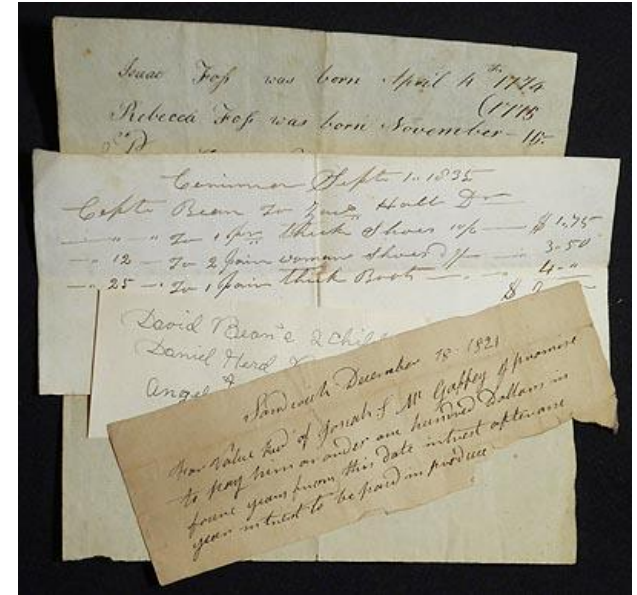 Isaac Foſs was born April 4th 1774
(1775
Rebecca Foſs was born November 15
Sept. 1. 1835
Capt Bean To Hall Dr
— " — " To 1 pr thick Shoes — $1.75
— " 12 — To 2 pair woman Shoes — 3.50
— " 25 — To 1 pair thick Boots — 4. "
$
David Bean's 2 child
Daniel Herd
Angel
Sandwich December 18 1821
for Value Recd of Josiah S Mc Gaffey I promise
to pay him or order one hundred Dollars in
foure years from this date intrest afterone
year intrest to be paid in produce